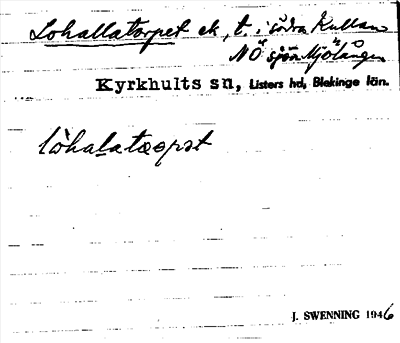 Lohallatorpet ek, t. i södra Kullan
NÖ sjön Mjölången
Kyrkhults sn, Listers hd, Blekinge län.
lòhalatorpat
J. SWENNING 1946